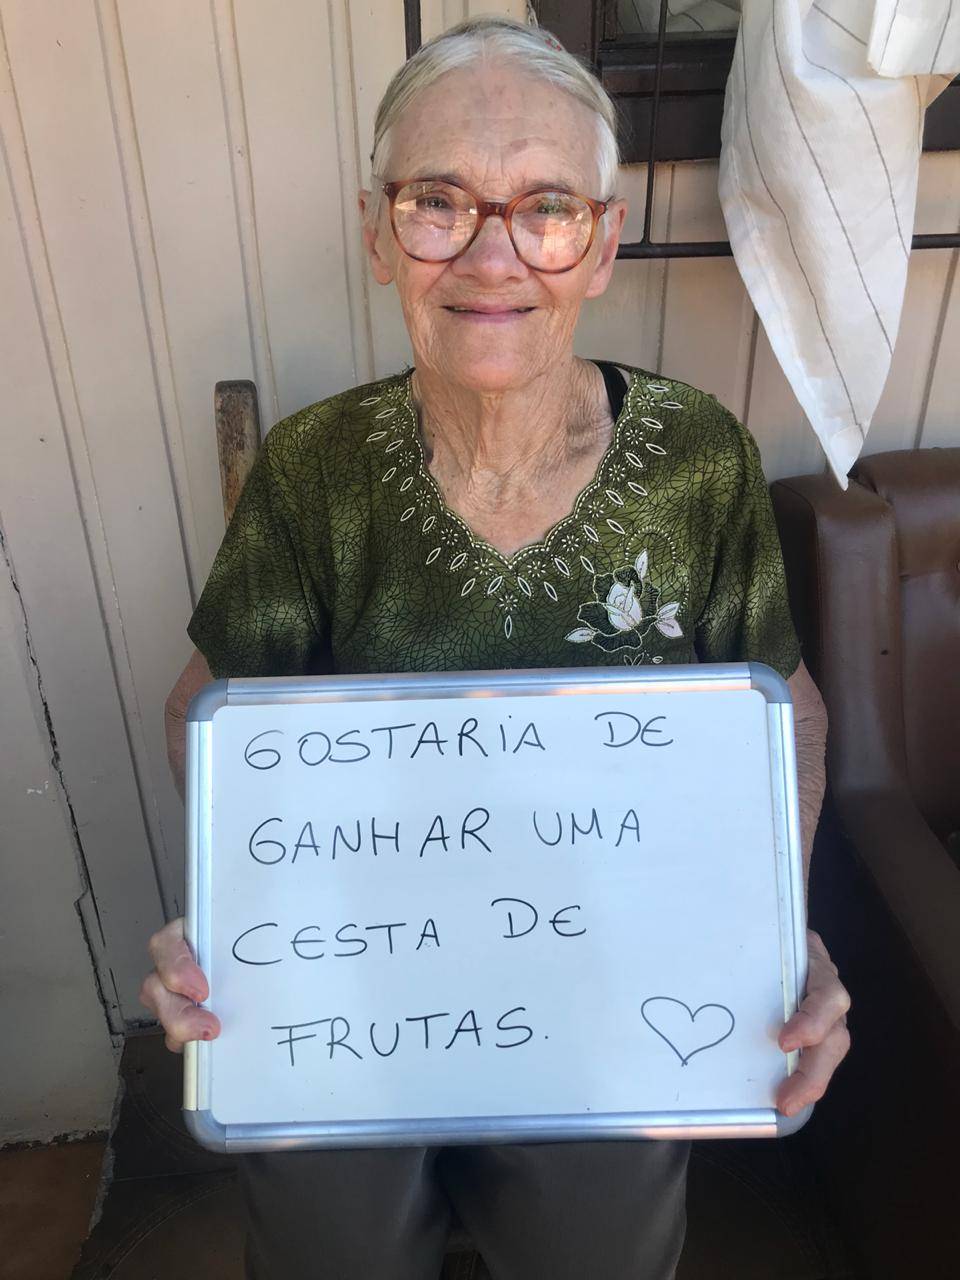 GOSTARiA DE
GANHAR UMA
CESTA DE
FRUTAS.